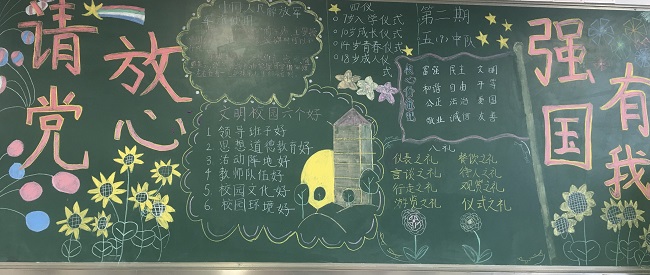 请党放心
强国有我
四仪
○7岁入学仪式
○10岁成长仪式
○14岁青春仪式
○18岁成人仪式
第二期
五(7)中队
富强 民主 文明
和谐 自由 平等
公正 法治 爱国
敬业 诚信 友善
文明校园六个好
1 领导班子好
2 思想道德教育好
3 活动阵地好
4 教师队伍好
5 校园文化好
6 校园环境好
八礼
仪表之礼 餐饮之礼
言谈之礼 待人之礼
行走之礼 观赏之礼
游览之礼 仪式之礼